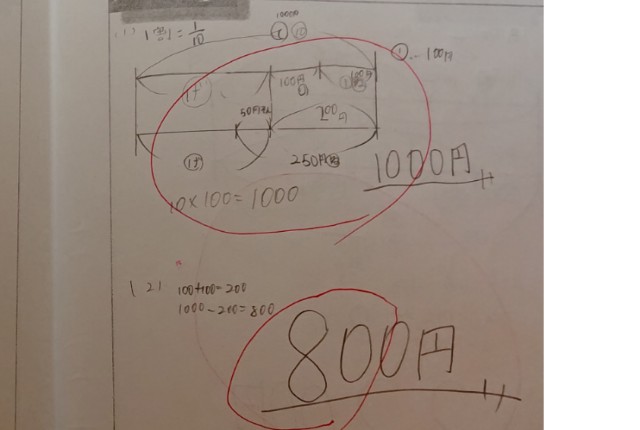 (1) 1割=1/10
1000円
⑩
①…100円
100円
50円
200円
250円
10×100=1000
1000円
(2) 100+100=200
1000-200=800
800円